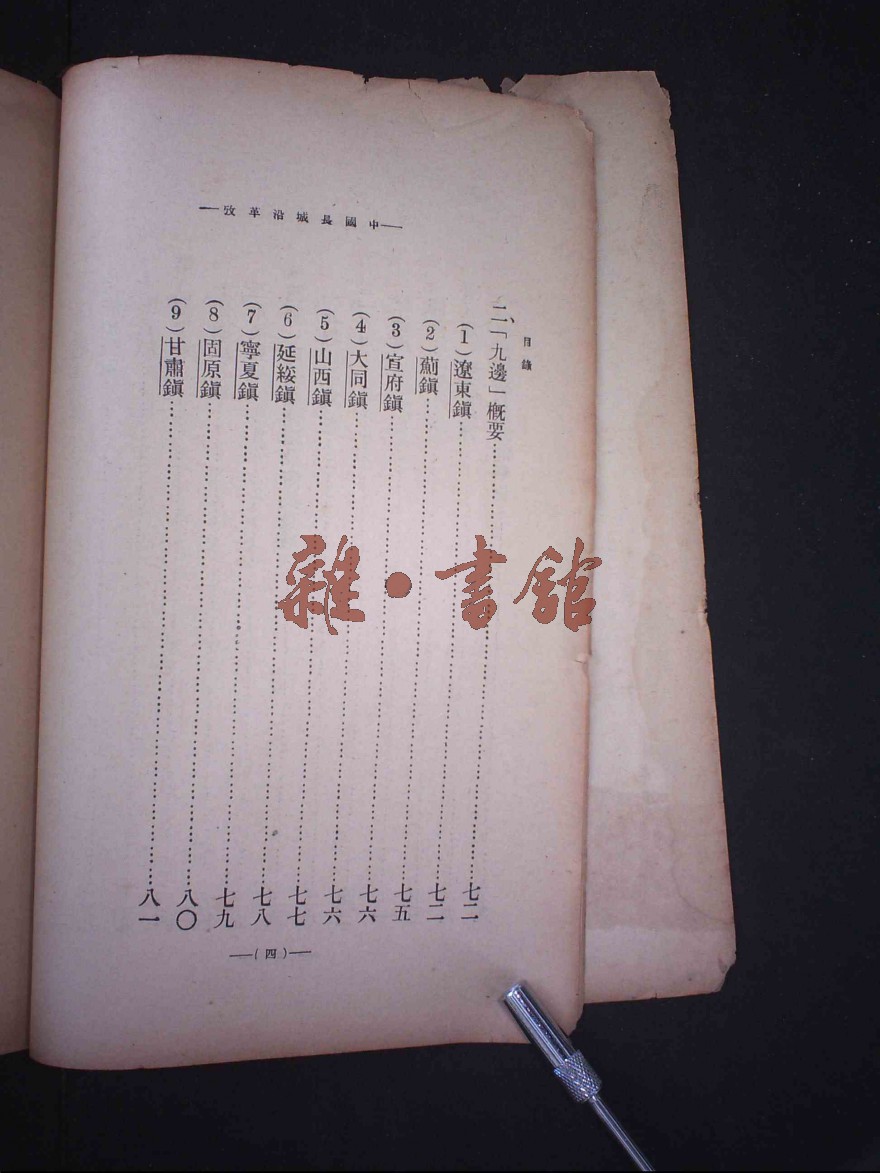 中國長城沿革攷
目錄
二、「九邊」概要……七二
(1)遼東鎭……七二
(2)薊鎭……七五
(3)宣府鎭……七六
(4)大同鎭……七六
(5)山西鎭……七七
(6)延綏鎭……七八
(7)寧夏鎭……七九
(8)固原鎭……八〇
(9)甘肅鎭……八一
(四)
雜·書館